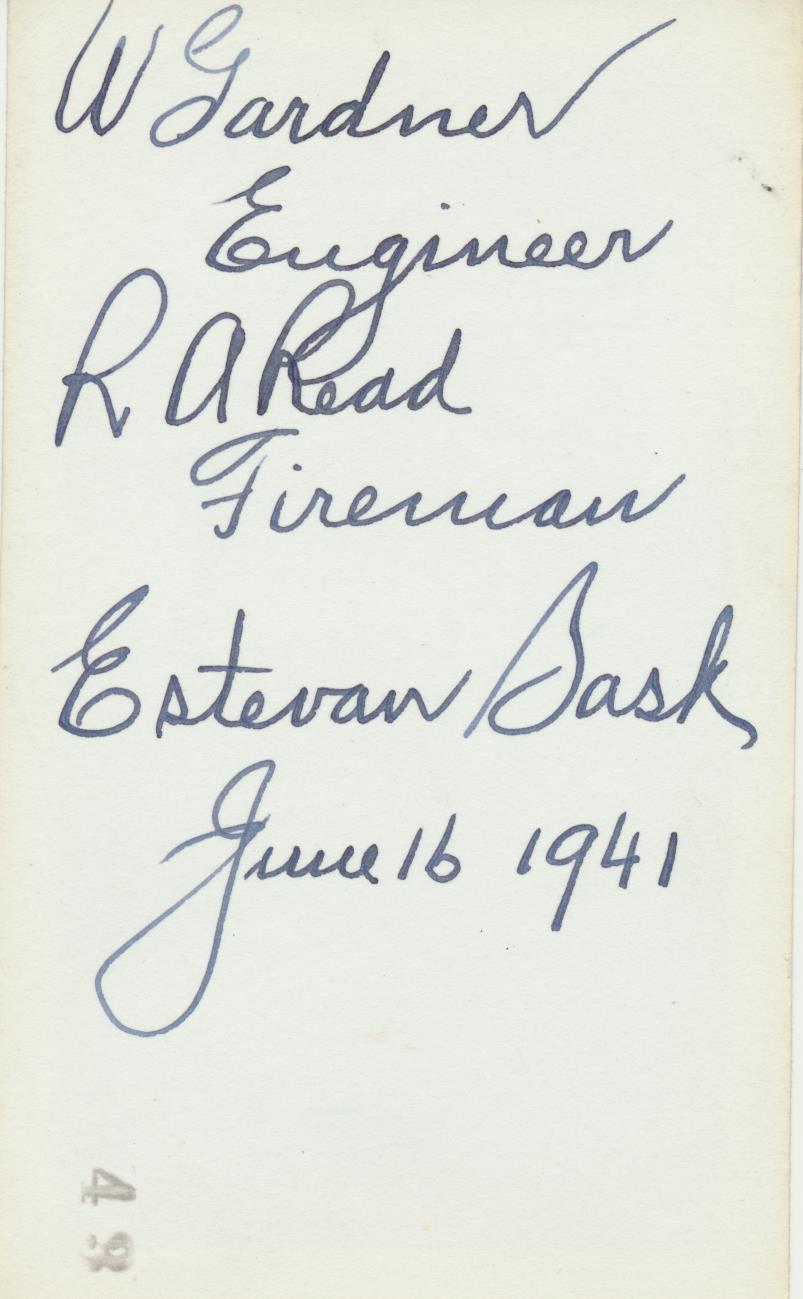 W Gardner
Engineer
R A Read
Fireman
Estevan Sask
June 16 1941